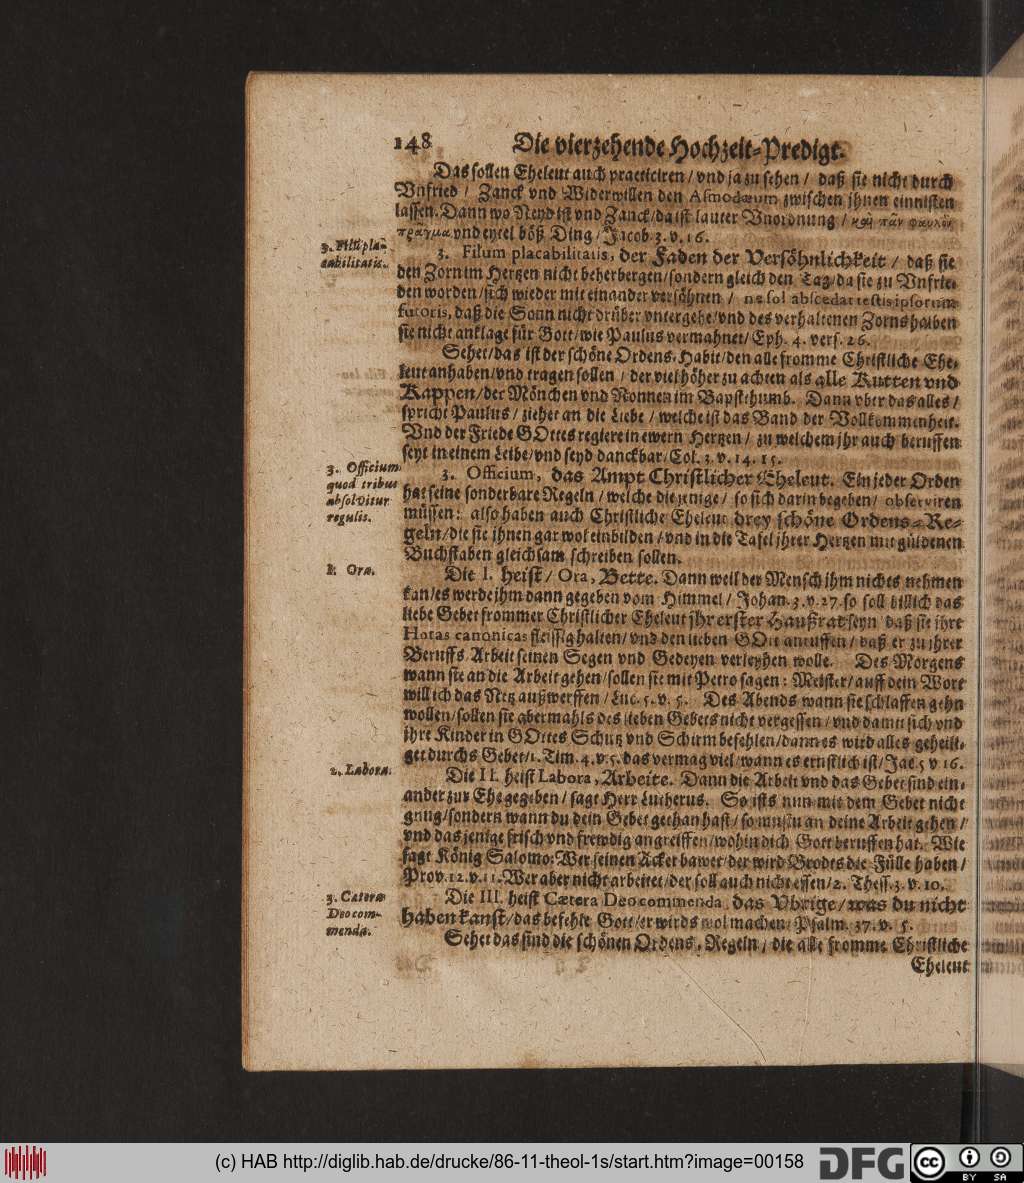 148 Die vierzehende Hochzeit-Predigt.
Das sollen Eheleut auch practiciren / vnd ja zu sehen / daß sie nicht durch
Vnfried / Zanck vnd Widerwillen den Asmodæum zwischen jhnen einnisten
lassen. Dann wo Neyd ist vnd Zanck / da ist lauter Vnordnung / καὶ πᾶν φαυλὸν
πραγμα vnd eytel böß Ding / Jacob. 3. v. 16.
3. Fili placabilitatis.
3. Filum placabilitatis, der Faden der Versöhnlichkeit / daß sie
den Zorn im Hertzen nicht beherbergen / sondern gleich den Tag / da sie zu Vnfrie-
den worden / sich wieder mit einander versöhnen / ne sol abscedat testis ipsorum
furoris, daß die Sonn nicht drüber vntergehe / vnd des verhaltenen Zorns halben
sie nicht anklage für Gott / wie Paulus vermahnet / Eph. 4. vers. 26.
Sehet / das ist der schöne Ordens-Habit / den alle fromme Christliche Ehe-
leut anhaben / vnd tragen sollen / der viel höher zu achten als alle Kutten vnd
Kappen / der Mönchen vnd Nonnen im Bapstthumb. Dann vber das alles /
spricht Paulus / ziehet an die Liebe / welche ist das Band der Vollkommenheit.
Vnd der Friede GOttes regiere in ewern Hertzen / zu welchem jhr auch beruffen
seyt in einem Leibe / vnd seyd danckbar / Col. 3. v. 14. 15.
3. Officium
quod tribus
absolvitur
regulis.
3. Officium, das Ampt Christlicher Eheleut. Ein jeder Orden
hat seine sonderbare Regeln / welche diejenige / so sich darin begeben / observiren
müssen: also haben auch Christliche Eheleut drey schöne Ordens-Re-
geln / die sie jhnen gar wol einbilden / vnd in die Tafel jhrer Hertzen mit güldenen
Buchstaben gleichsam schreiben sollen.
1. Ora.
Die I. heist / Ora, Bette. Dann weil der Mensch jhm nichts nehmen
kan / es werde jhm dann gegeben vom Himmel / Johan. 3. v. 27. so soll billich das
liebe Gebet frommer Christlicher Eheleut jhr erster Haußrad seyn / daß sie jhre
Horas canonicas fleissig halten / vnd den lieben GOtt anruffen / daß er zu jhrer
Beruffs-Arbeit seinen Segen vnd Gedeyen verleyhen wolle. Des Morgens
wann sie an die Arbeit gehen / sollen sie mit Petro sagen: Meister / auff dein Wort
will ich das Netz außwerffen / Luc. 5. v. 5. Des Abends wann sie schlaffen gehn
wollen / sollen sie abermahls des lieben Gebets nicht vergessen / vnd damit sich vnd
jhre Kinder in GOttes Schutz vnd Schirm befehlen / dann es wird alles geheili-
get durchs Gebet / 1. Tim. 4. v. 5. das vermag viel / wann es ernstlich ist / Jac. 5 v 16.
2. Labora.
Die II. heist Labora, Arbeite. Dann die Arbeit vnd das Gebet sind ein-
ander zur Ehe gegeben / sagt Herr Lutherus. So ists nun mit dem Gebet nicht
gnug / sondern wann du dein Gebet gethan hast / so mustu an deine Arbeit gehen /
vnd dasjenige frisch vnd frewdig angreiffen / wohin dich Gott beruffen hat. Wie
sagt König Salomo: Wer seinen Acker bawet / der wird Brodts die Fülle haben /
Prov. 12. v. 11. Wer aber nicht arbeitet / der soll auch nicht essen / 2. Thess. 3. v. 10.
3. Cætera
Deo com-
menda.
Die III. heist Cætera Deo commenda, das Vbrige / was du nicht
haben kanst / das befehle Gott / er wirds wol machen / Psalm. 37. v. 5.
Sehet das sind die schönen Ordens-Regeln / die alle fromme Christliche
Eheleut
(c) HAB http://diglib.hab.de/drucke/86-11-theol-1s/start.htm?image=00158
DFG
cc
BY SA